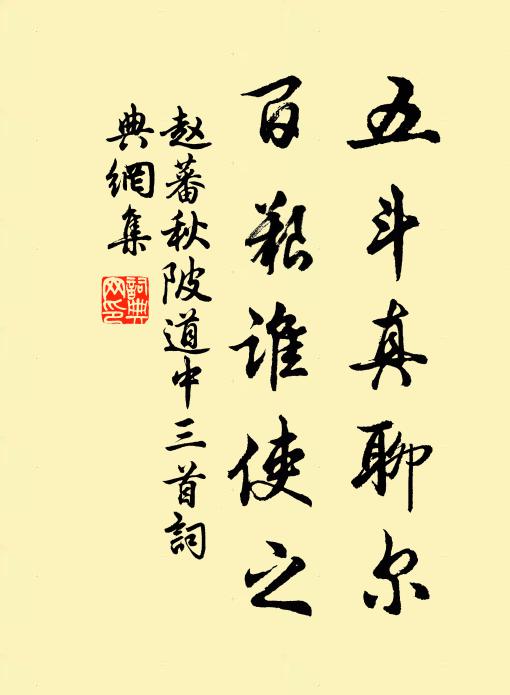 五斗真聊尔
百艰谁使之
赵蕃秋陂道中三首词
典網集
詞典
网印